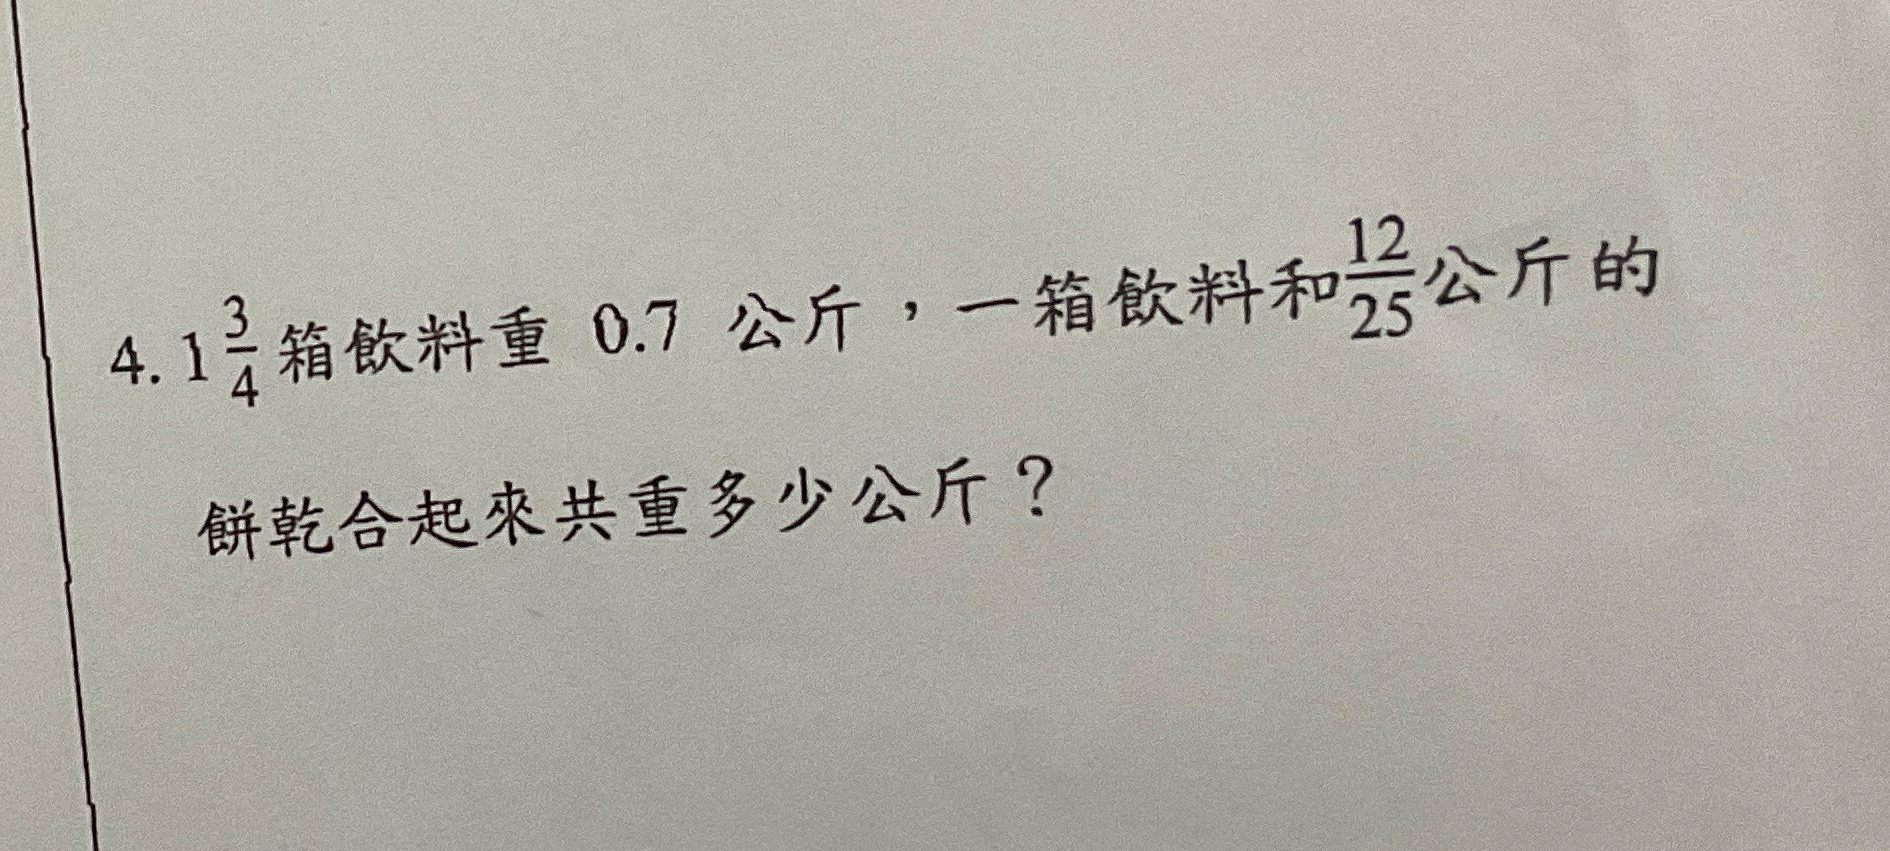 4. 1 3/4 箱飲料重 0.7 公斤，一箱飲料和 12/25 公斤的
餅乾合起來共重多少公斤？